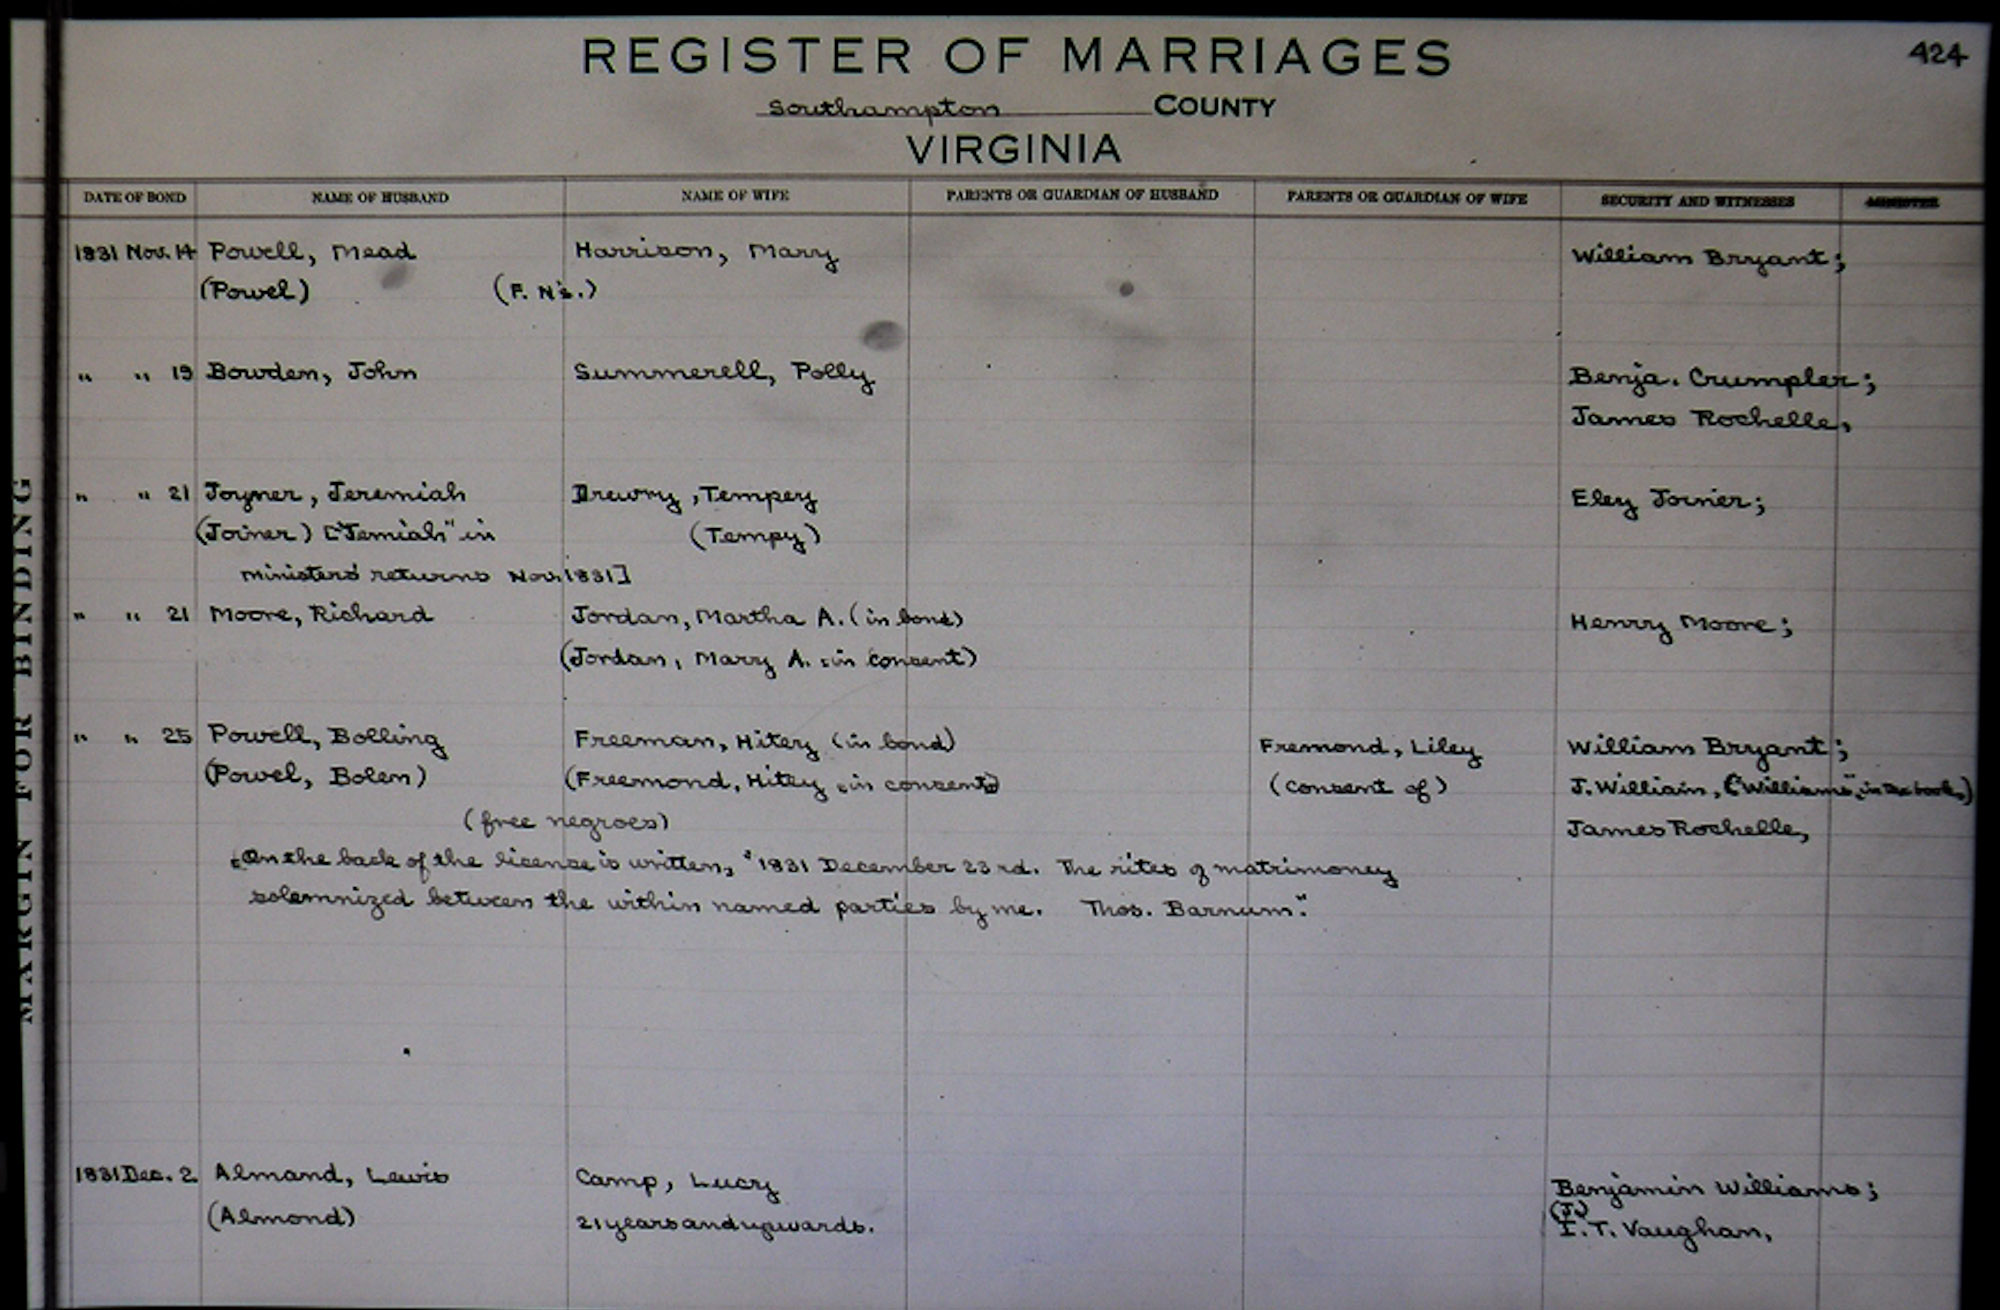 REGISTER OF MARRIAGES
424
Southampton COUNTY
VIRGINIA
MARGIN FOR BINDING
DATE OF BOND NAME OF HUSBAND NAME OF WIFE PARENTS OR GUARDIAN OF HUSBAND PARENTS OR GUARDIAN OF WIFE SECURITY AND WITNESSES MINISTER
1831 Nov. 14 Powell, Mead Harrison, Mary William Bryant;
(Powel) (F. N's.)
" " 19 Bowden, John Summerell, Polly Benja. Crumpler;
James Rochelle,
" " 21 Joyner, Jeremiah Drewry, Tempey Eley Joiner;
(Joiner) ["Jemiah" in (Tempy)
ministers' returns Nov. 1831]
" " 21 Moore, Richard Jordan, Martha A. (in bond) Henry Moore;
(Jordan, Mary A. in consent)
" " 25 Powell, Bolling Freeman, Hitey (in bond) Fremond, Liley William Bryant;
(Powel, Bolen) (Freemond, Hitey in consent) (consent of) J. William, ("Williams" in tax books)
(free negroes) James Rochelle,
On the back of the license is written, "1831 December 23rd. The rites of matrimoney
solemnized between the within named parties by me. Thos. Barnum."
1831 Dec. 2 Almand, Lewis Camp, Lucy Benjamin Williams;
(Almond) 21 years and upwards. (J.)
I. T. Vaughan,